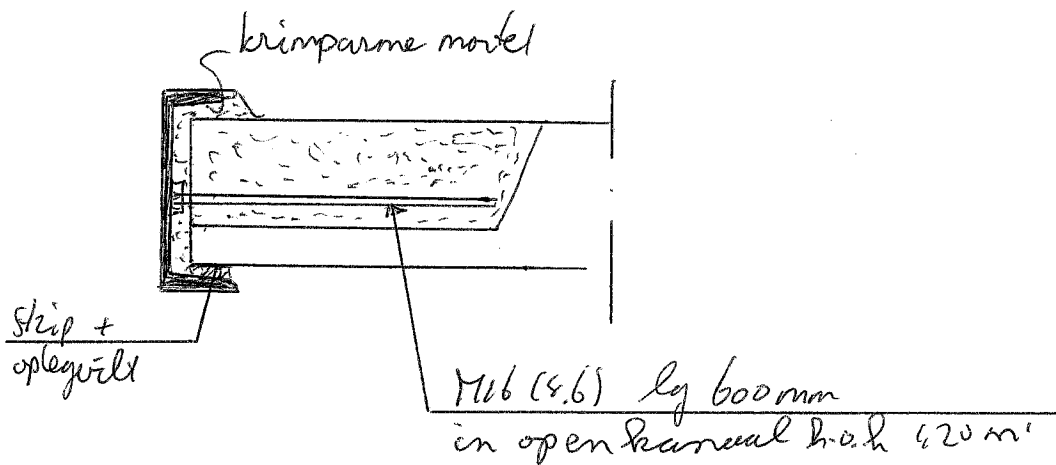 krimparme mortel
strip +
oplegvilt
M16 (4.6) lg 600mm
in open kanaal h.o.h 1,20 m'